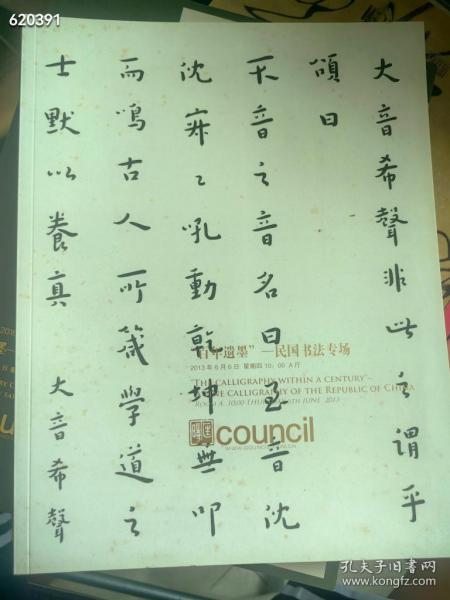 620391
大音希聲非此之謂乎
頌曰
不音之音名曰至音沈
沈寂寂吼動乾坤無叩
而鳴古人所箴學道之
士默以養真 大音希聲
"百年遗墨"—民国书法专场
2013年6月6日 星期四 10：00 A厅
"THE CALLIGRAPHY WITHIN A CENTURY"–
THE CALLIGRAPHY OF THE REPUBLIC OF CHINA
ROOM A 10:00 THURSDAY 6TH JUNE 2013
council
孔夫子旧书网
www.kongfz.com